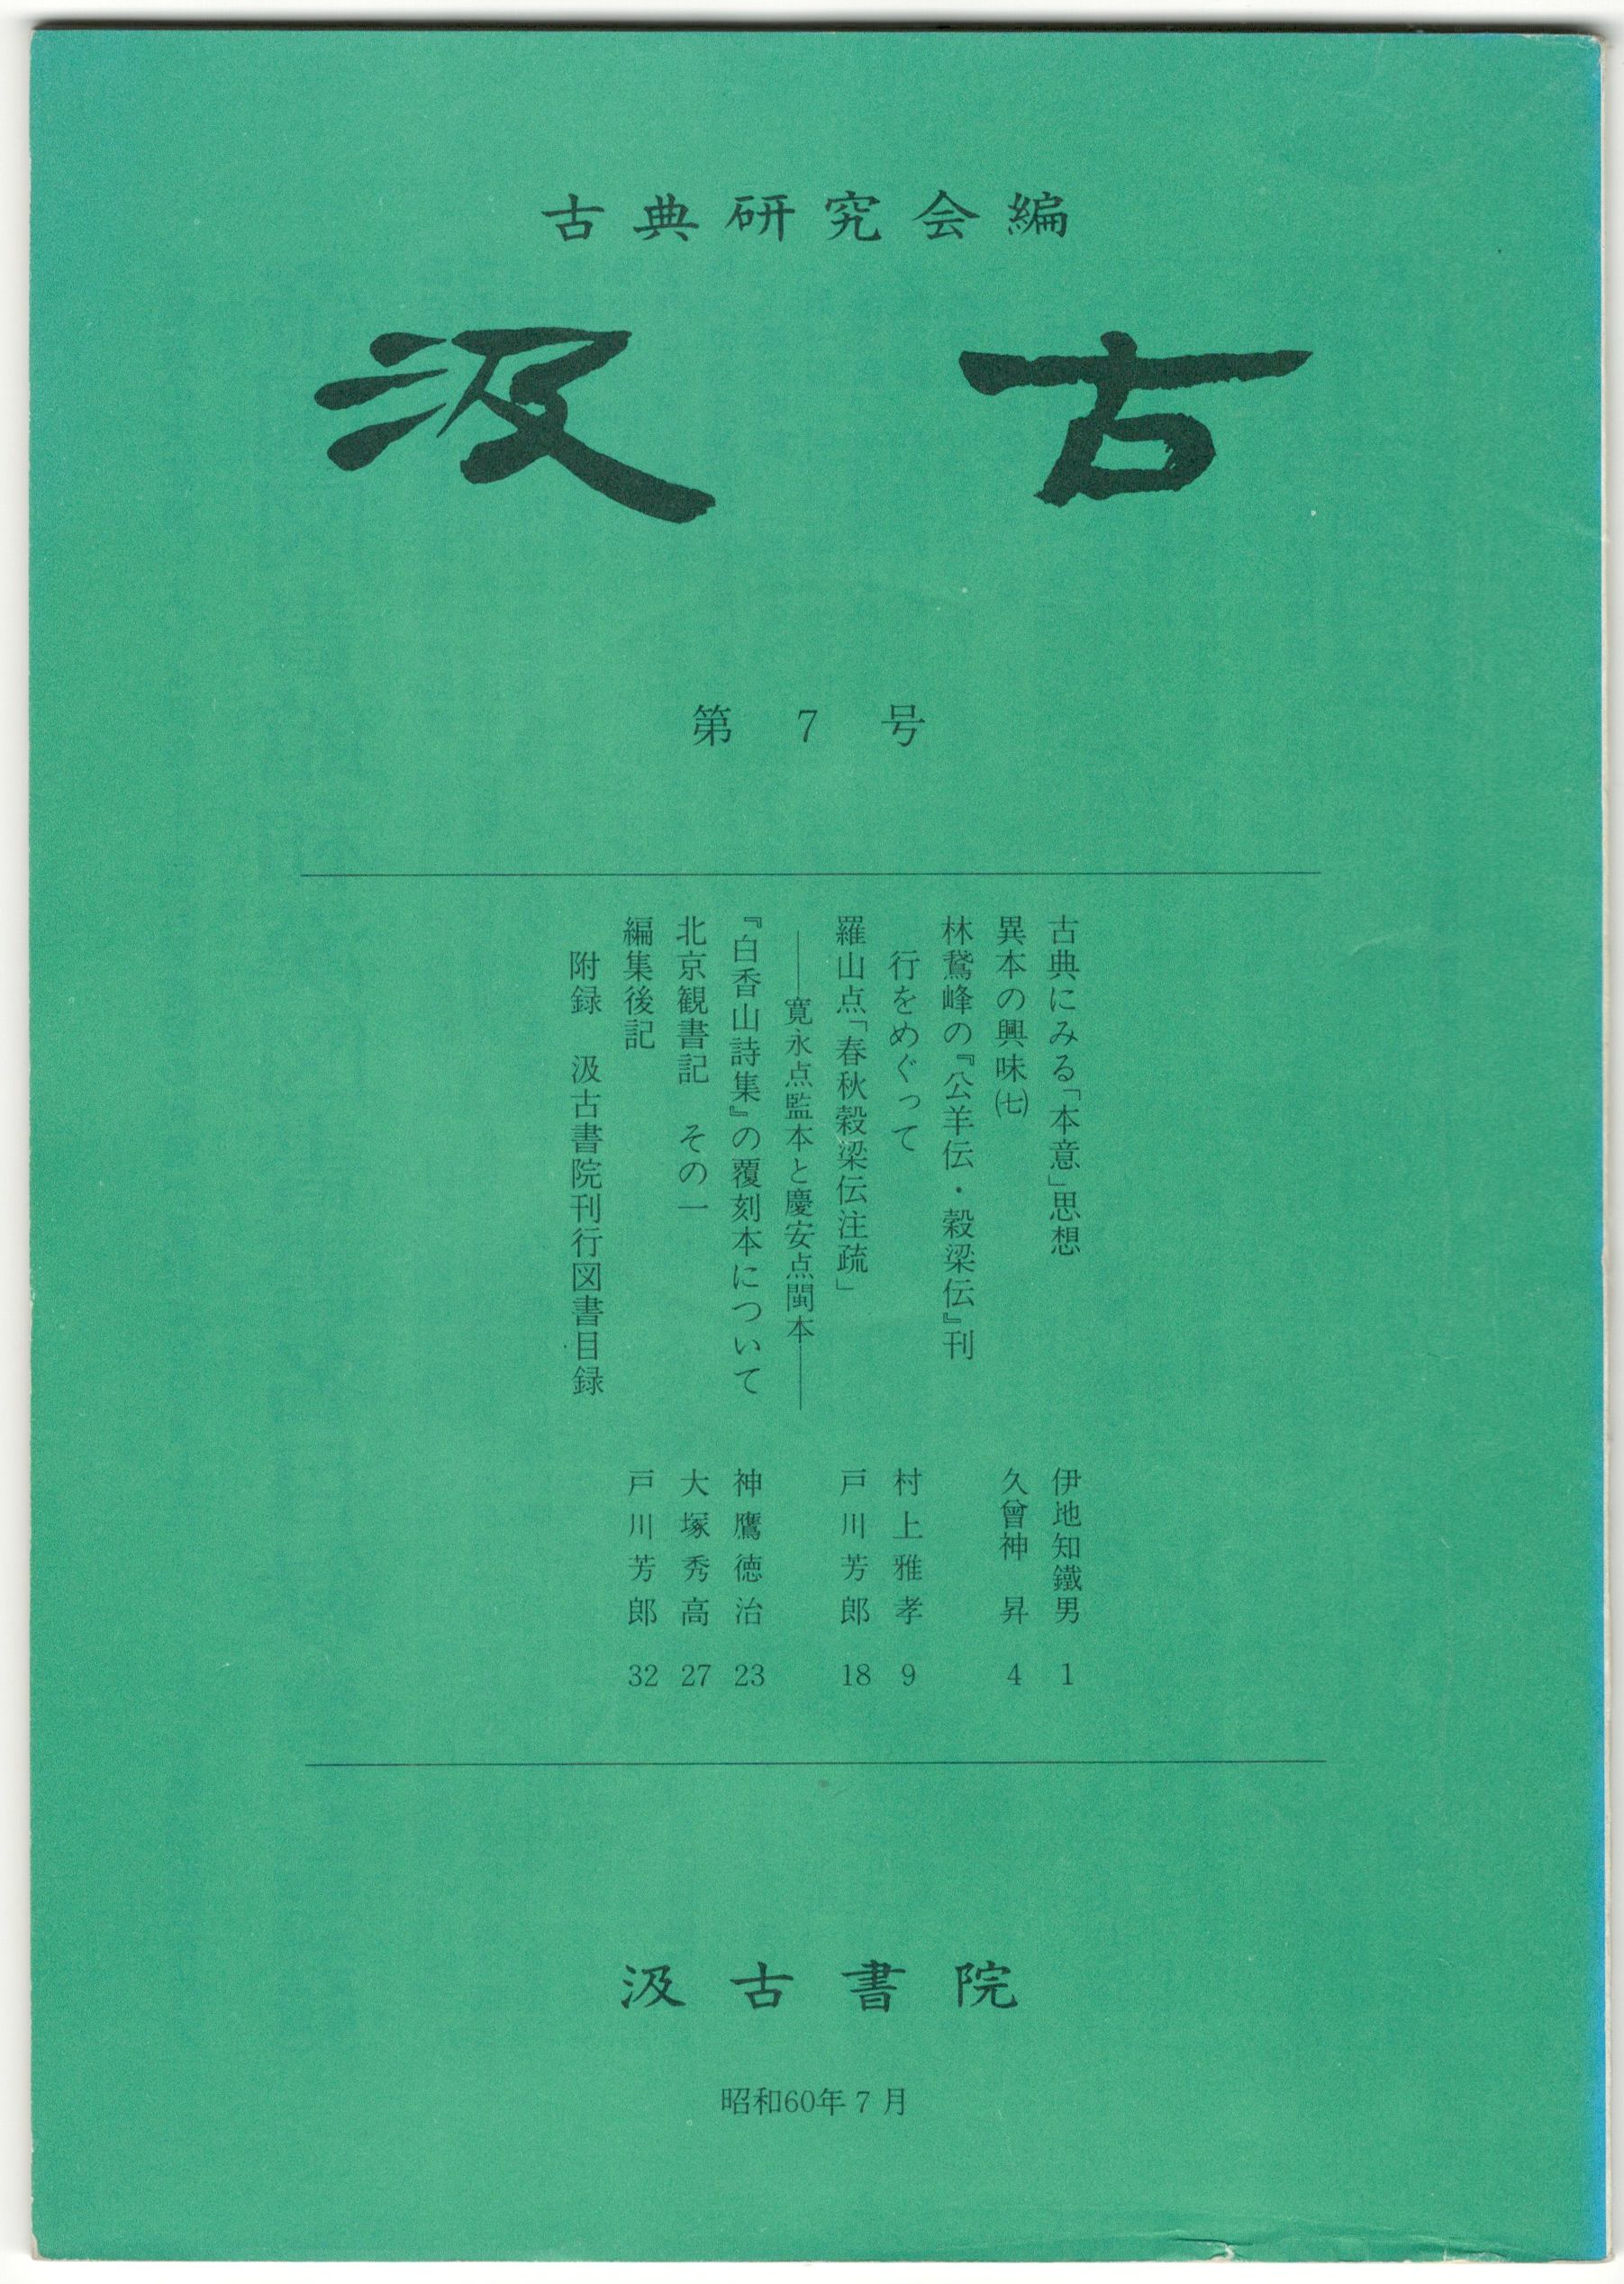 古典研究会編
汲古
第7号
古典にみる「本意」思想 伊地知鐵男 1
異本の興味㈦ 久曾神 昇 4
林鵞峰の『公羊伝・穀梁伝』刊
行をめぐって 村上雅孝 9
羅山点「春秋穀梁伝注疏」 戸川芳郎 18
――寛永点監本と慶安点閩本――
『白香山詩集』の覆刻本について 神鷹徳治 23
北京観書記 その一 大塚秀高 27
編集後記 戸川芳郎 32
附録 汲古書院刊行図書目録
汲古書院
昭和60年7月